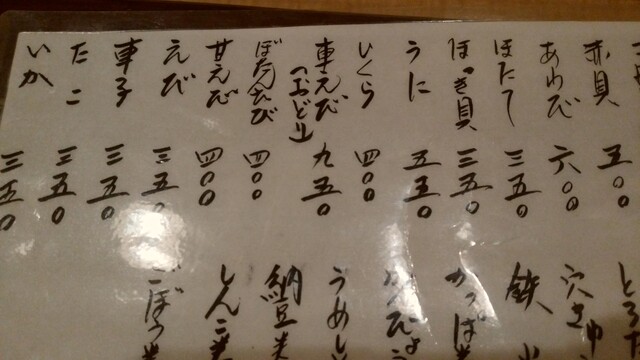 赤貝 五〇〇
あわび 六〇〇
ほたて 三五〇
ほっき貝 三五〇
うに 五五〇
いくら 四〇〇
車えび 九五〇
「おどり」
ぼたんえび 四〇〇
甘えび 四〇〇
えび 三五〇
車子 三五〇
たこ 三五〇
いか 三五〇
とろた
穴きゅ
鉄火
かっぱ巻
かんぴょう
うめし
納豆巻
しんこ巻
ごぼう巻